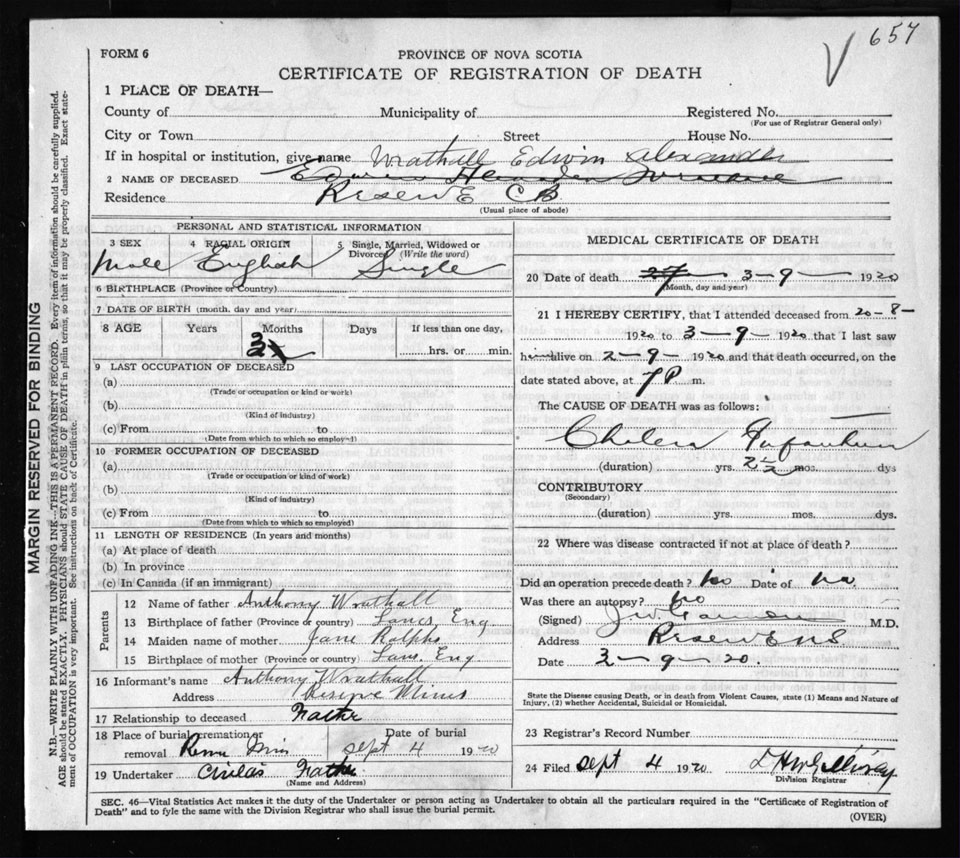 657
FORM 6
PROVINCE OF NOVA SCOTIA
CERTIFICATE OF REGISTRATION OF DEATH
1 PLACE OF DEATH—
County of Municipality of Registered No.
(For use of Registrar General only)
City or Town Street House No.
If in hospital or institution, give name Wrathall Edwin Alexander
2 NAME OF DECEASED
Residence Reserve C B
(Usual place of abode)
PERSONAL AND STATISTICAL INFORMATION
3 SEX 4 RACIAL ORIGIN 5 Single, Married, Widowed or Divorced (Write the word)
Male English Single
6 BIRTHPLACE (Province or Country)
7 DATE OF BIRTH (month, day and year)
8 AGE Years Months Days If less than one day,
hrs. or min.
9 LAST OCCUPATION OF DECEASED
(a)
(Trade or occupation or kind or work)
(b)
(Kind of industry)
(c) From to
(Date from which to which so employed)
10 FORMER OCCUPATION OF DECEASED
(a)
(Trade or occupation of kind of work)
(b)
(Kind of industry)
(c) From to
(Date from which to which so employed)
11 LENGTH OF RESIDENCE (In years and months)
(a) At place of death
(b) In province
(c) In Canada (if an immigrant)
Parents
12 Name of father Anthony Wrathall
13 Birthplace of father (Province or country) Lancs Eng
14 Maiden name of mother Jane Ralphs
15 Birthplace of mother (Province or country) Lans. Eng
16 Informant's name Anthony Wrathall
Address Reserve Mines
17 Relationship to deceased Father
18 Place of burial, cremation or removal Date of burial
Sept 4 1920
19 Undertaker Father
(Name and Address)
MEDICAL CERTIFICATE OF DEATH
20 Date of death 27 3-9- 1920
(Month, day and year)
21 I HEREBY CERTIFY, that I attended deceased from 20-8-
1920 to 3-9- 1920 that I last saw
him alive on 2-9- 1920 and that death occurred, on the
date stated above, at 7 P m.
The CAUSE OF DEATH was as follows:
Cholera Infantum
(duration) yrs. mos. dys
CONTRIBUTORY
(Secondary)
(duration) yrs. mos. dys.
22 Where was disease contracted if not at place of death?
Did an operation precede death? No Date of no
Was there an autopsy? No
(Signed) M.D.
Address Reserve NS
Date 3-9-20.
State the Disease causing Death, or in death from Violent Causes, state (1) Means and Nature of
Injury, (2) whether Accidental, Suicidal or Homicidal.
23 Registrar's Record Number
24 Filed Sept 4 1920
Division Registrar
SEC. 46—Vital Statistics Act makes it the duty of the Undertaker or person acting as Undertaker to obtain all the particulars required in the "Certificate of Registration of
Death" and to fyle the same with the Division Registrar who shall issue the burial permit.
(OVER)
MARGIN RESERVED FOR BINDING
N.B.—WRITE PLAINLY WITH UNFADING INK—THIS IS A PERMANENT RECORD. Every item of information should be carefully supplied.
AGE should be stated EXACTLY. PHYSICIANS should STATE CAUSE OF DEATH in plain terms, so that it may be properly classified. Exact state-
ment of OCCUPATION is very important. See instructions on back of Certificate.